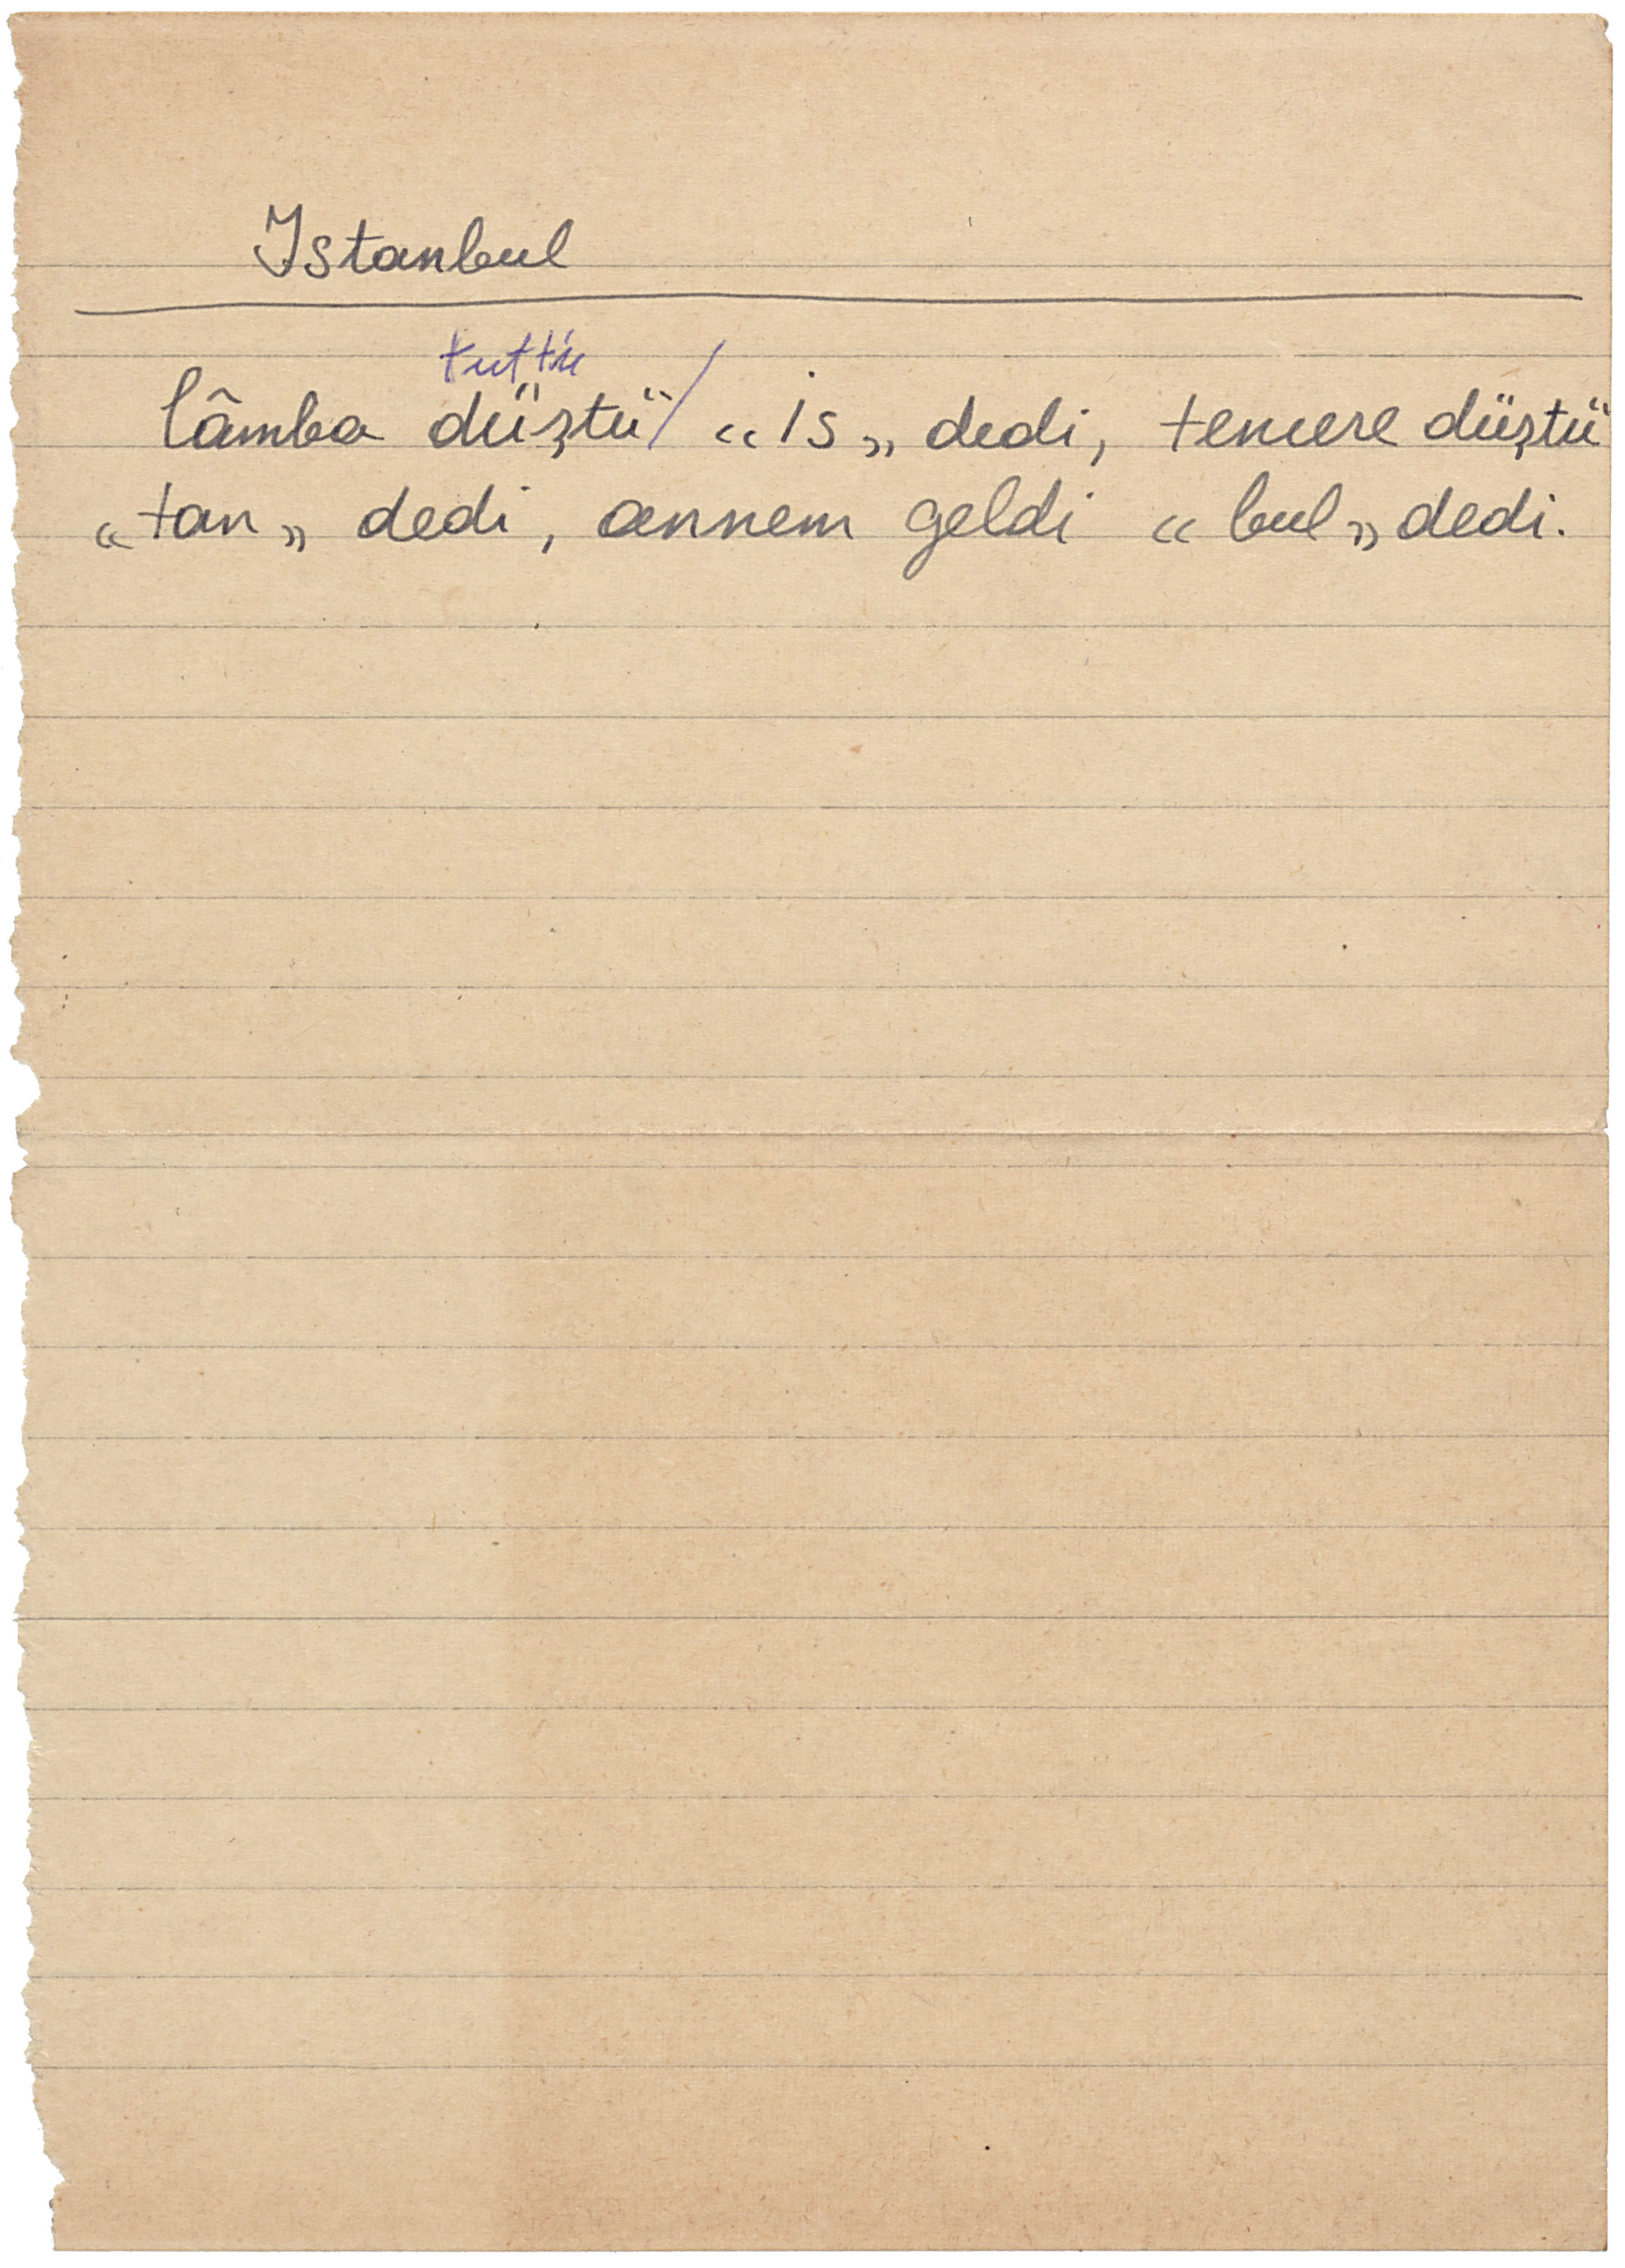 Istanbul
tuttu
lâmba düştü / „is„ dedi, tencere düştü
„tan„ dedi, annem geldi „bul„ dedi.